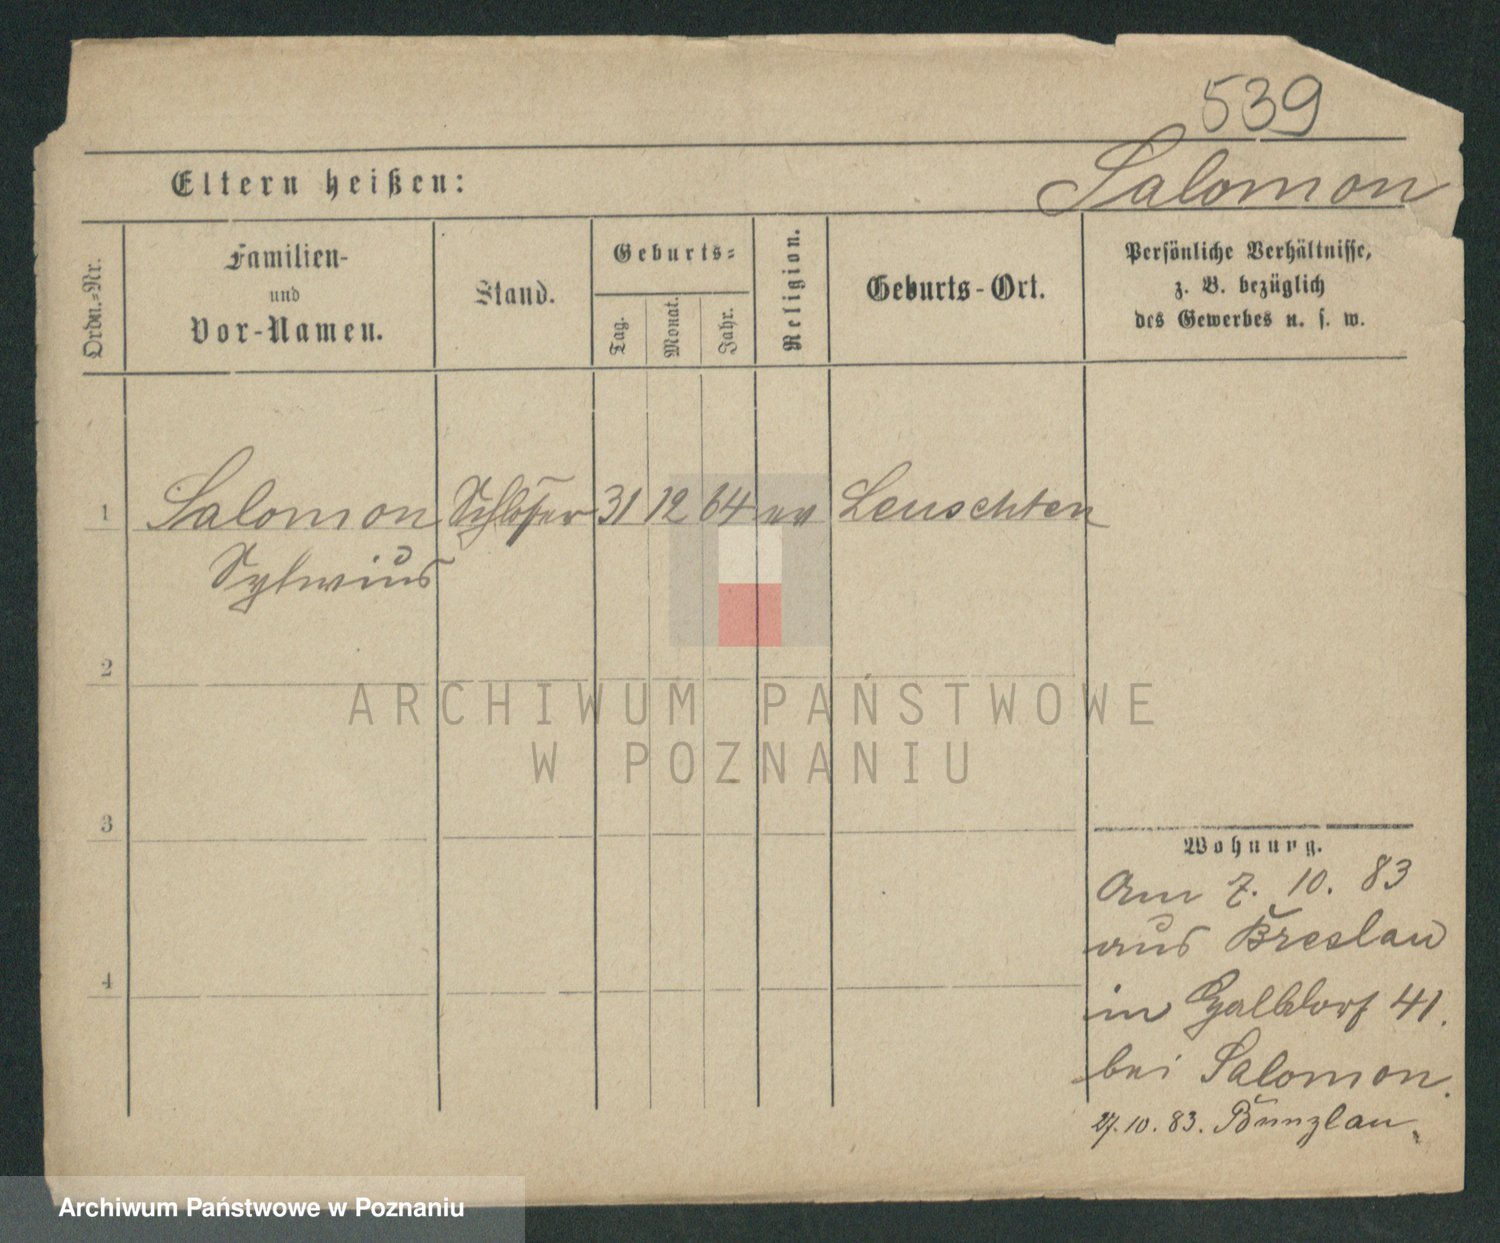 539
Eltern heißen:
Salomon
Ordn.-Nr.
Familien-
und
Vor-Namen.
Stand.
Geburts-
Tag.
Monat.
Jahr.
Religion.
Geburts-Ort.
Persönliche Verhältnisse,
z. B. bezüglich
des Gewerbes u. s. w.
1 Salomon Schloſser 31 12 64 ev Leuschten
Sylwius
2
3
4
ARCHIWUM PAŃSTWOWE
W POZNANIU
Wohnung.
Am 7. 10. 83
aus Breslau
in 41.
bei Salomon.
27. 10. 83. Bunzlau.
Archiwum Państwowe w Poznaniu